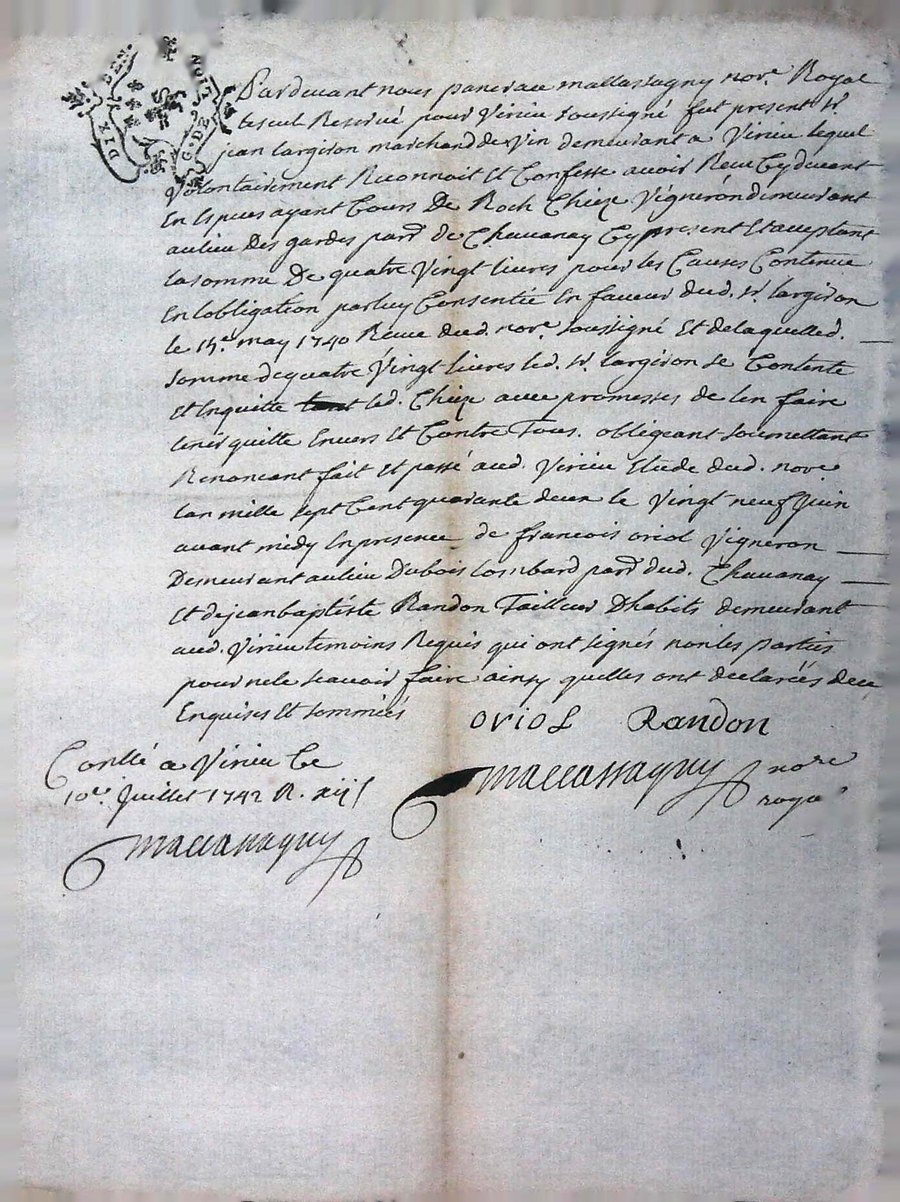 DIX DEN. G. DE LION
Pardevant nous pancrau mallassagny nore. Royal
et seul Reservé pour Virieu soussigné fut present sr.
jean largiron marchand de vin demeurant a Virieu lequel
Volontairement Reconnoit Et Confesse avoir Receu Cy devant
En Espuces ayant Cours De Roch Chieze Vigneron demeurant
au lieu des gardes parr. de Chavanay Cy present Et aceptant
la somme De quatre Vingt livres pour les Causes Contenue
En lobligation par luy Consentie En faveur dud. sr. largiron
le may 1740 Receue dud. nore. soussigné Et de laquelled.
somme de quatre Vingt livres led. sr. largiron se Contente
Et Enquitte led. Chieze avec promesses de len faire
tenir quitte Envers Et Contre Tous. obligeant soumettant
Renoncant fait Et passé aud. Virieu Etude dud. nore
lan mille sept Cent quarante deux le Vingt neuf Juin
avant midy En presence de francois oriol Vigneron
Demeurant au lieu Dubois lombard parr. dud. Chavanay
Et de jean baptiste Randon Tailleur Dhabits demeurant
aud. Virieu temoins Requis qui ont signés non les parties
pour ne le scavoir faire ainsy quelles ont declarées de ce
Enquises Et sommées oriol Randon
Conllé a Virieu le
10e. Juillet 1742 R.
mallassagny nore
roya
mallassagny